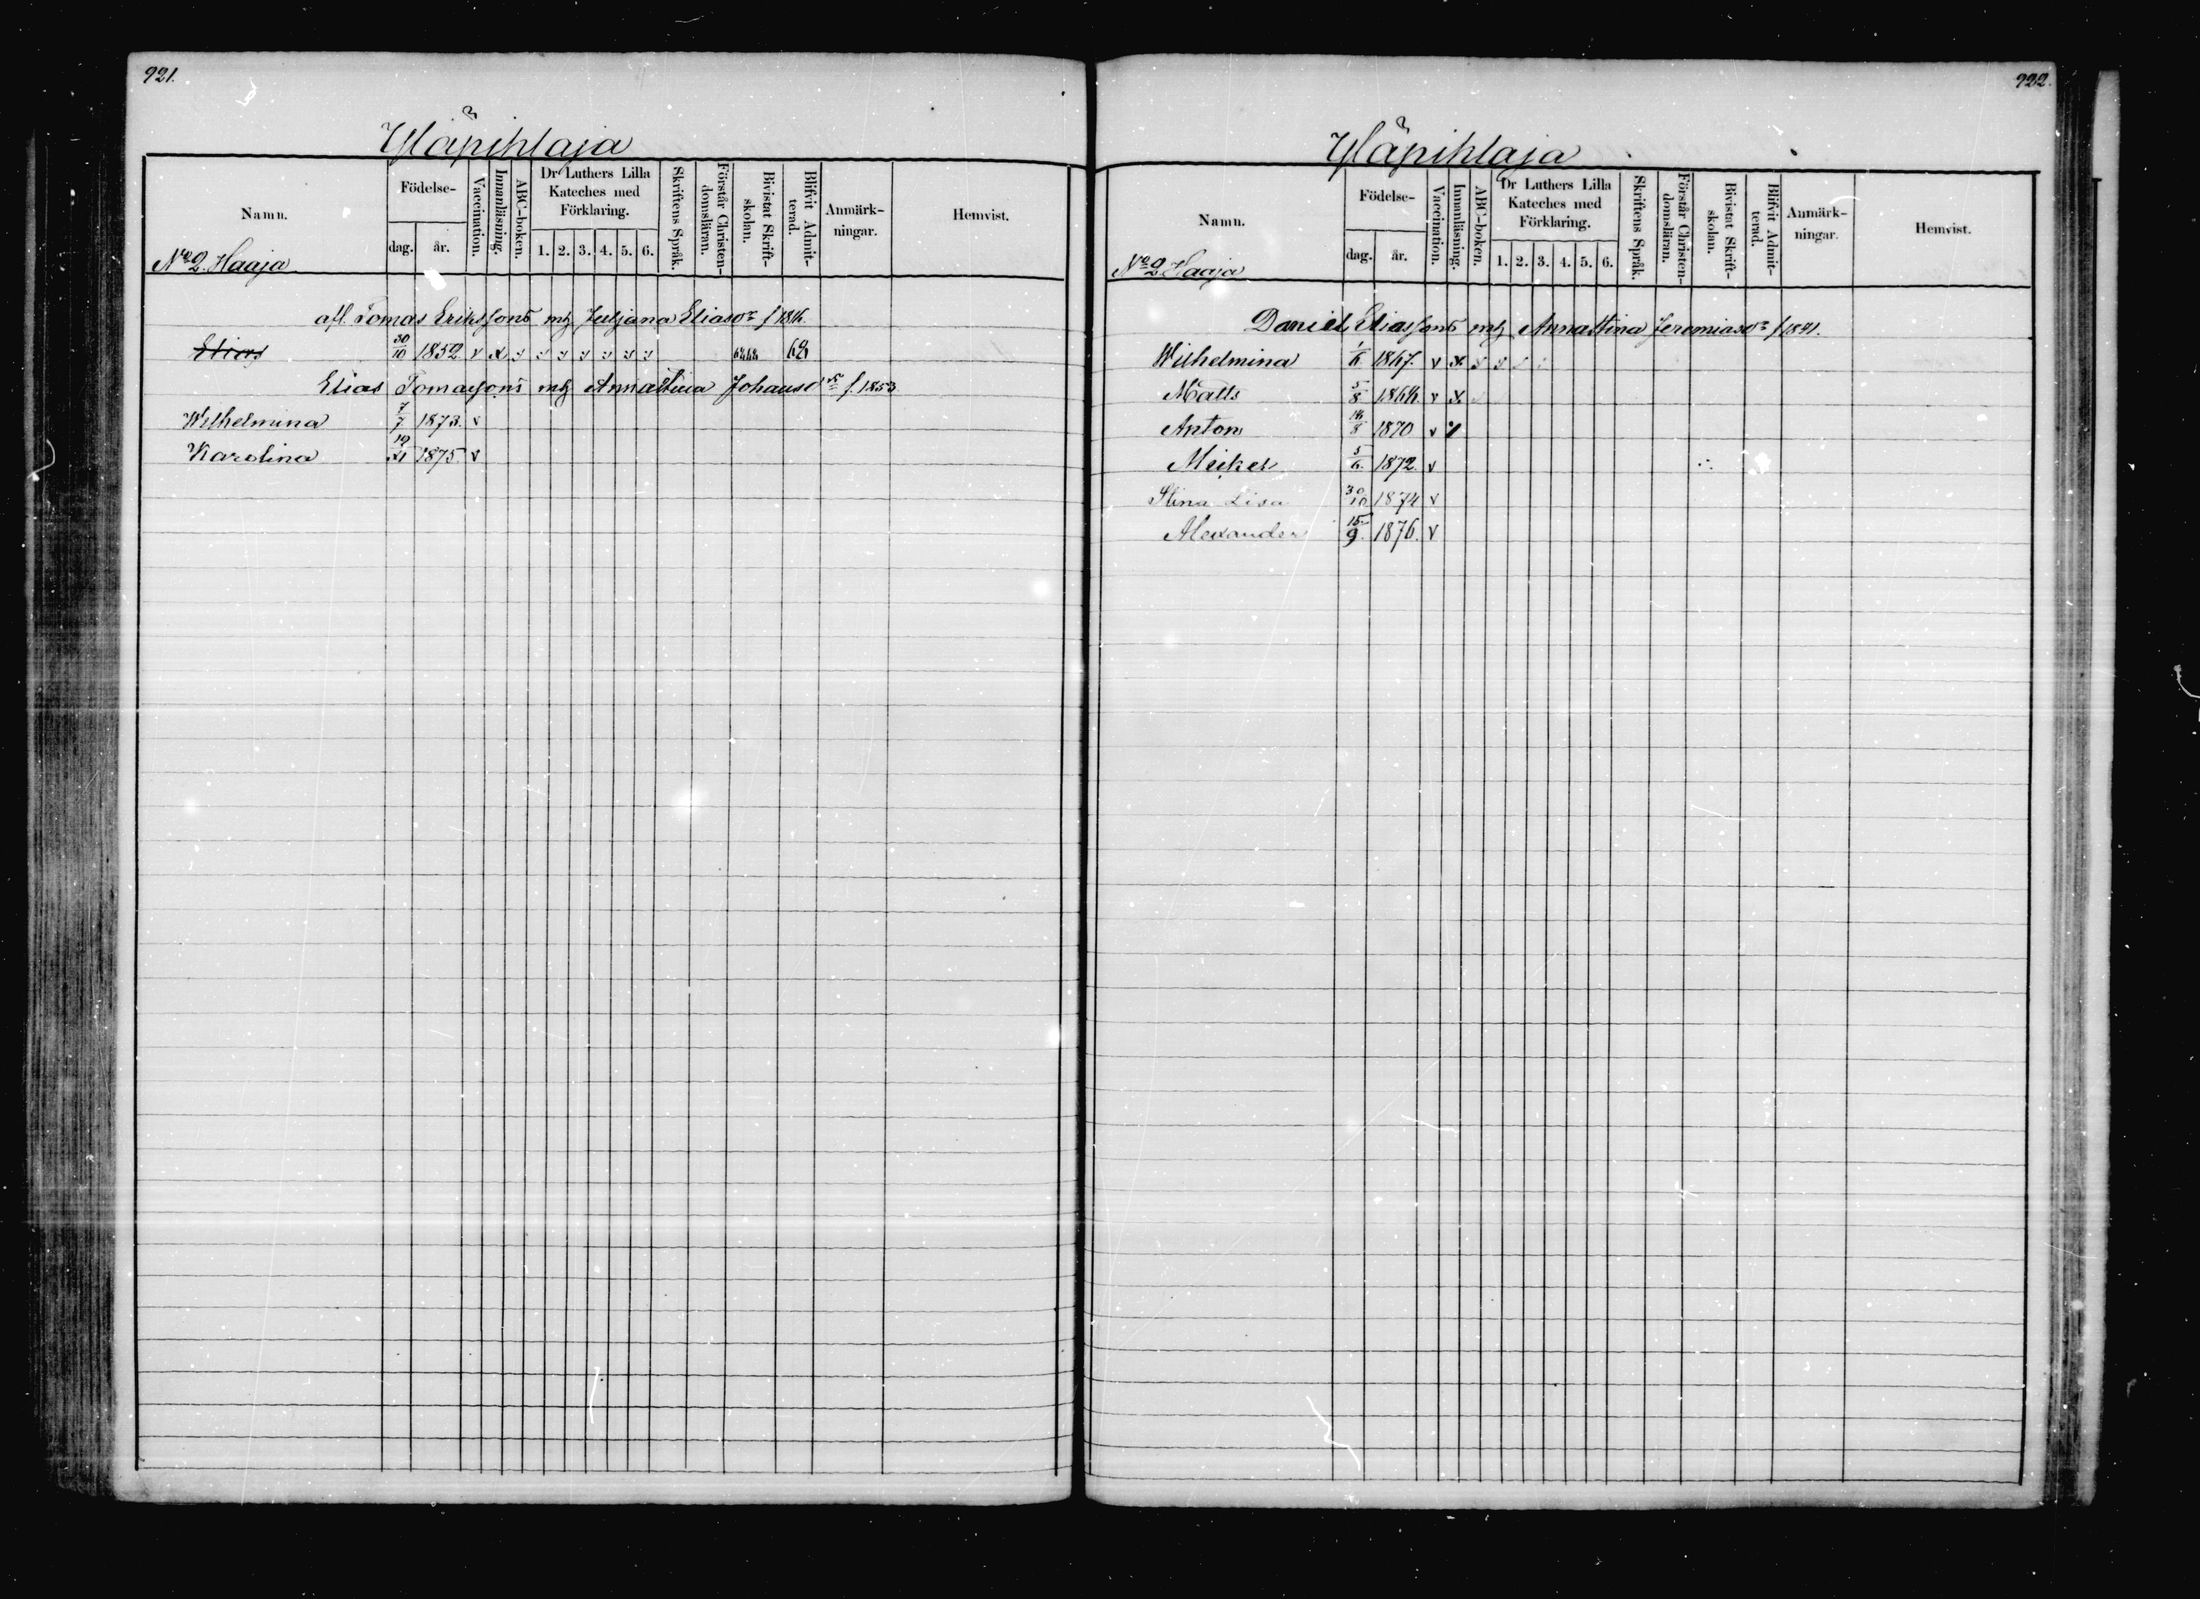 921.
Yläpihlaja
Namn.
Födelse-
dag. år.
Vaccination.
Innanläsning.
ABC-boken.
Dr Luthers Lilla Kateches med Förklaring.
1. 2. 3. 4. 5. 6.
Skriftens Språk.
Förstår Christen-domsläran.
Bivistat Skrift-skolan.
Blifvit Admit-terad.
Anmärk-ningar.
Hemvist.
No 2 Haaja
afl. Tomas Erikssons mtz Juljana Eliasdr f 1816.
Elias 30/10 1852 v x
Elias Tomassons mtz Annastina Johansd f. 1853
Wilhelmina 7/7 1873. v
Karolina 19/XI 1875. v
922.
Yläpihlaja
Namn.
Födelse-
dag. år.
Vaccination.
Innanläsning.
ABC-boken.
Dr Luthers Lilla Kateches med Förklaring.
1. 2. 3. 4. 5. 6.
Skriftens Språk.
Förstår Christen-domsläran.
Bivistat Skrift-skolan.
Blifvit Admit-terad.
Anmärk-ningar.
Hemvist.
No 2 Haaja
Daniel Eliassons mtz Annastina Jeremiasdr f 1841.
Wilhelmina 1/6 1867. v x
Matts 5/8 1868. v x
Anton 16/8 1870 v
Meikel 5/6 1872. v
Stina Lisa 30/10 1874 v
Alexander 15/9. 1876. v